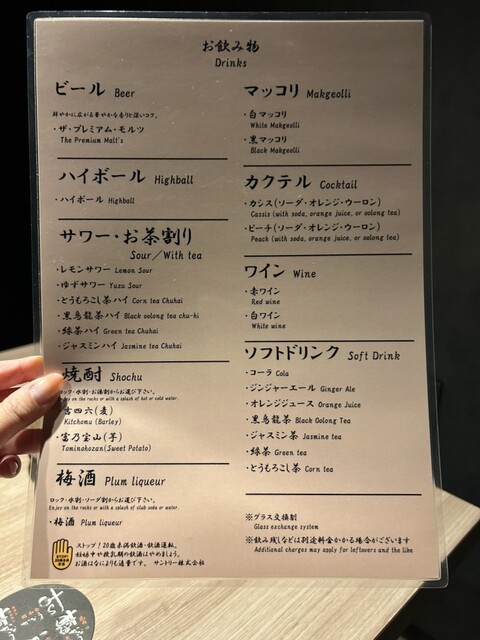 お飲み物
Drinks
ビール Beer
鮮やかに広がる華やかな香りと深いコク。
・ザ・プレミアム・モルツ
The Premium Malt's
ハイボール Highball
・ハイボール Highball
サワー・お茶割り
Sour／With tea
・レモンサワー Lemon Sour
・ゆずサワー Yuzu Sour
・とうもろこし茶ハイ Corn tea Chuhai
・黒烏龍茶ハイ Black oolong tea chu-hi
・緑茶ハイ Green tea Chuhai
・ジャスミンハイ Jasmine tea Chuhai
焼酎 Shochu
ロック・水割・お湯割からお選び下さい。
Enjoy on the rocks or with a splash of hot or cold water.
吉四六(麦)
Kitchomu (Barley)
・富乃宝山(芋)
Tominohozan(Sweet Potato)
梅酒 Plum liqueur
ロック・水割・ソーダ割からお選び下さい。
Enjoy on the rocks or with a splash of club soda or water.
・梅酒 Plum liqueur
ストップ！20歳未満飲酒・飲酒運転。
妊娠中や授乳期の飲酒はやめましょう。
お酒はなによりも適量です。 サントリー株式会社
マッコリ Makgeolli
・白マッコリ
White Makgeolli
・黒マッコリ
Black Makgeolli
カクテル Cocktail
・カシス(ソーダ・オレンジ・ウーロン)
Cassis (with soda, orange juice, or oolong tea)
・ピーチ(ソーダ・オレンジ・ウーロン)
Peach (with soda, orange juice, or oolong tea)
ワイン Wine
・赤ワイン
Red wine
・白ワイン
White wine
ソフトドリンク Soft Drink
・コーラ Cola
・ジンジャーエール Ginger Ale
・オレンジジュース Orange Juice
・黒烏龍茶 Black Oolong Tea
・ジャスミン茶 Jasmine tea
・緑茶 Green tea
・とうもろこし茶 Corn tea
※グラス交換制
Glass exchange system
※飲み残しなどは別途料金かかる場合がございます
Additional charges may apply for leftovers and the like